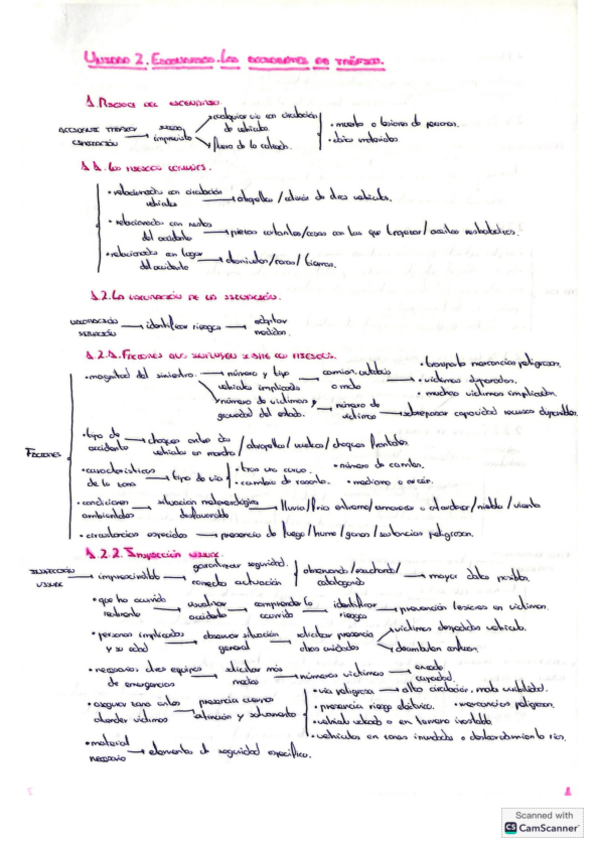 UNIDAD 2. ESCENARIO. LOS ACCIDENTES DE TRÁFICO.
1. RIESGOS DEL ESCENARIO.
ACCIDENTE TRÁFICO CIRCULACIÓN → suceso imprevisto → cualquier vía con circulación de vehículos. / fuera de la calzada. • muerte o lesiones de personas. • daños materiales
1.1. LOS RIESGOS COMUNES.
• relacionados con circulación vehículos → atropellos / colisión de otros vehículos.
• relacionados con restos del accidente → piezas cortantes/cosas con las que tropezar/aceites resbaladizos.
• relacionados con lugar del accidente → desniveles/rocas/barrancos.
1.2. LA VALORACIÓN DE LA SITUACIÓN.
VALORACIÓN SITUACIÓN → identificar riesgos → adoptar medidas.
1.2.1. FACTORES QUE INFLUYEN SOBRE LOS RIESGOS.
FACTORES
• magnitud del siniestro. → número y tipo vehículos implicados → camión, autobús o moto → • transporte mercancías peligrosas. • víctimas atrapadas. • muchas víctimas implicadas.
número de víctimas y gravedad del estado. → número de víctimas → sobrepasar capacidad recursos disponibles.
• tipo de accidente → choques entre dos vehículos en marcha / atropellos / vuelcos / choques frontales.
• características de la zona → tipo de vía • tras una curva. • cambio de rasante. • número de carriles. • mediana o arcén.
• condiciones ambientales → situación meteorológica desfavorable → lluvia/frío extremo/amanecer o atardecer/niebla/viento
• circunstancias especiales → presencia de fuego/humo/gases/sustancias peligrosas.
1.2.2. INSPECCIÓN VISUAL.
INSPECCIÓN VISUAL → imprescindible → garantizar seguridad. / correcta actuación observando/escuchando/catalogando → mayor datos posibles.
• que ha ocurrido realmente → visualizar accidente → comprender lo ocurrido → identificar riesgos → prevención lesiones en víctimas.
• personas implicadas y su edad → observar situación general → solicitar presencia otras unidades → víctimas despedidas vehículo. / deambulan
• necesarios otros equipos de emergencias → solicitar más medios → números víctimas → capacidad.
• asegurar zona antes abordar víctimas → presencia cuerpos extinción y salvamento • vía peligrosa → alta circulación, mala visibilidad. • presencia riesgo eléctrico. • mercancías peligrosas. • vehículo volcado o en terreno inestable. • vehículos en zonas inundadas o desbordamiento ríos.
• material necesario → elementos de seguridad específico.
1
Scanned with
CS CamScanner